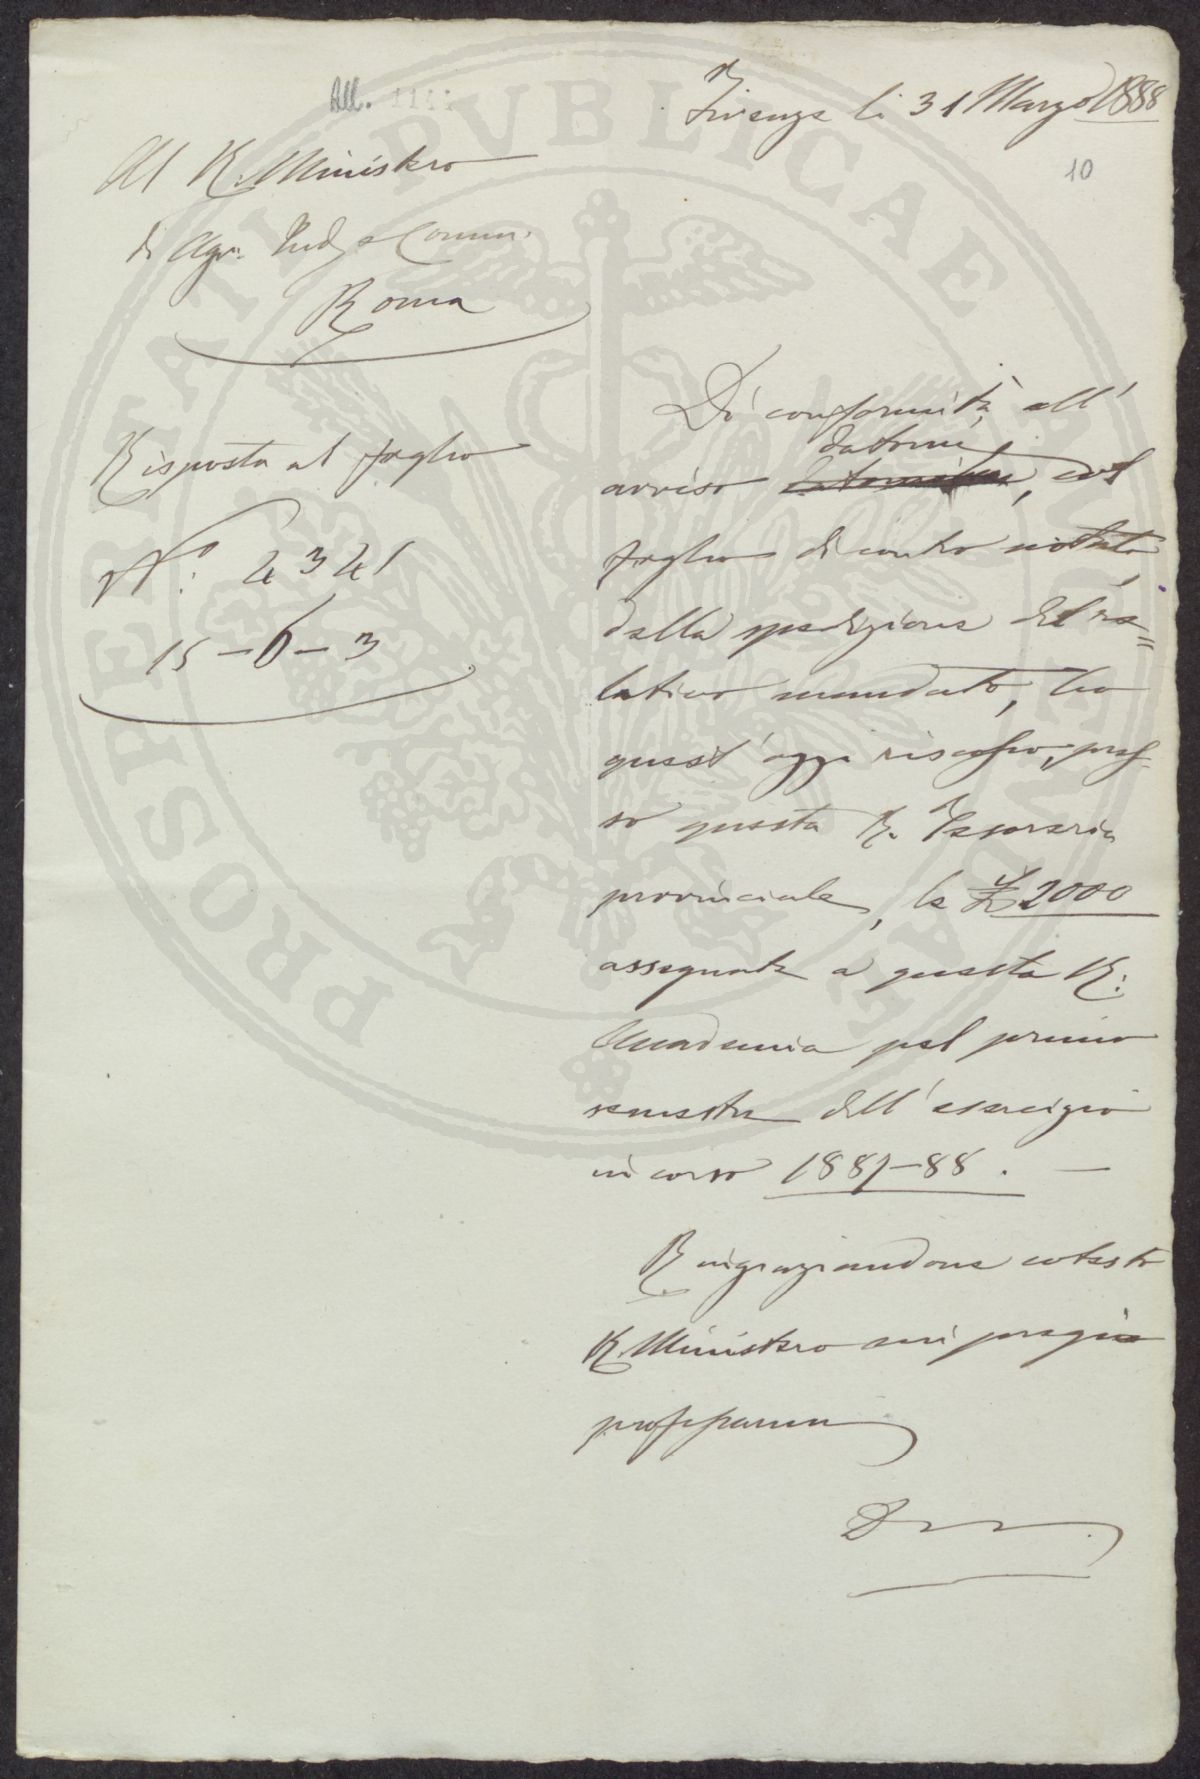 All. 1111
Firenze li 31 Marzo 1888
10
Al R. Ministero
di Agr. Ind. e Comm.
Roma
Risposta al foglio
N.° 4341
15-6-3
Di conformità all'
avviso datomi, col
foglio di contro notato,
della spedizione del re=
lativo mandato, ho
quest'oggi riscosso, pres-
so questa R. Tesoreria
provinciale, le £ 2000
assegnate a questa R.
Accademia pel primo
semestre dell'esercizio
in corso 1887-88. —
Ringraziandone cotesto
R. Ministero mi pregio
professarmi
PROSPERITATI PVBLICAE AVGENDAE